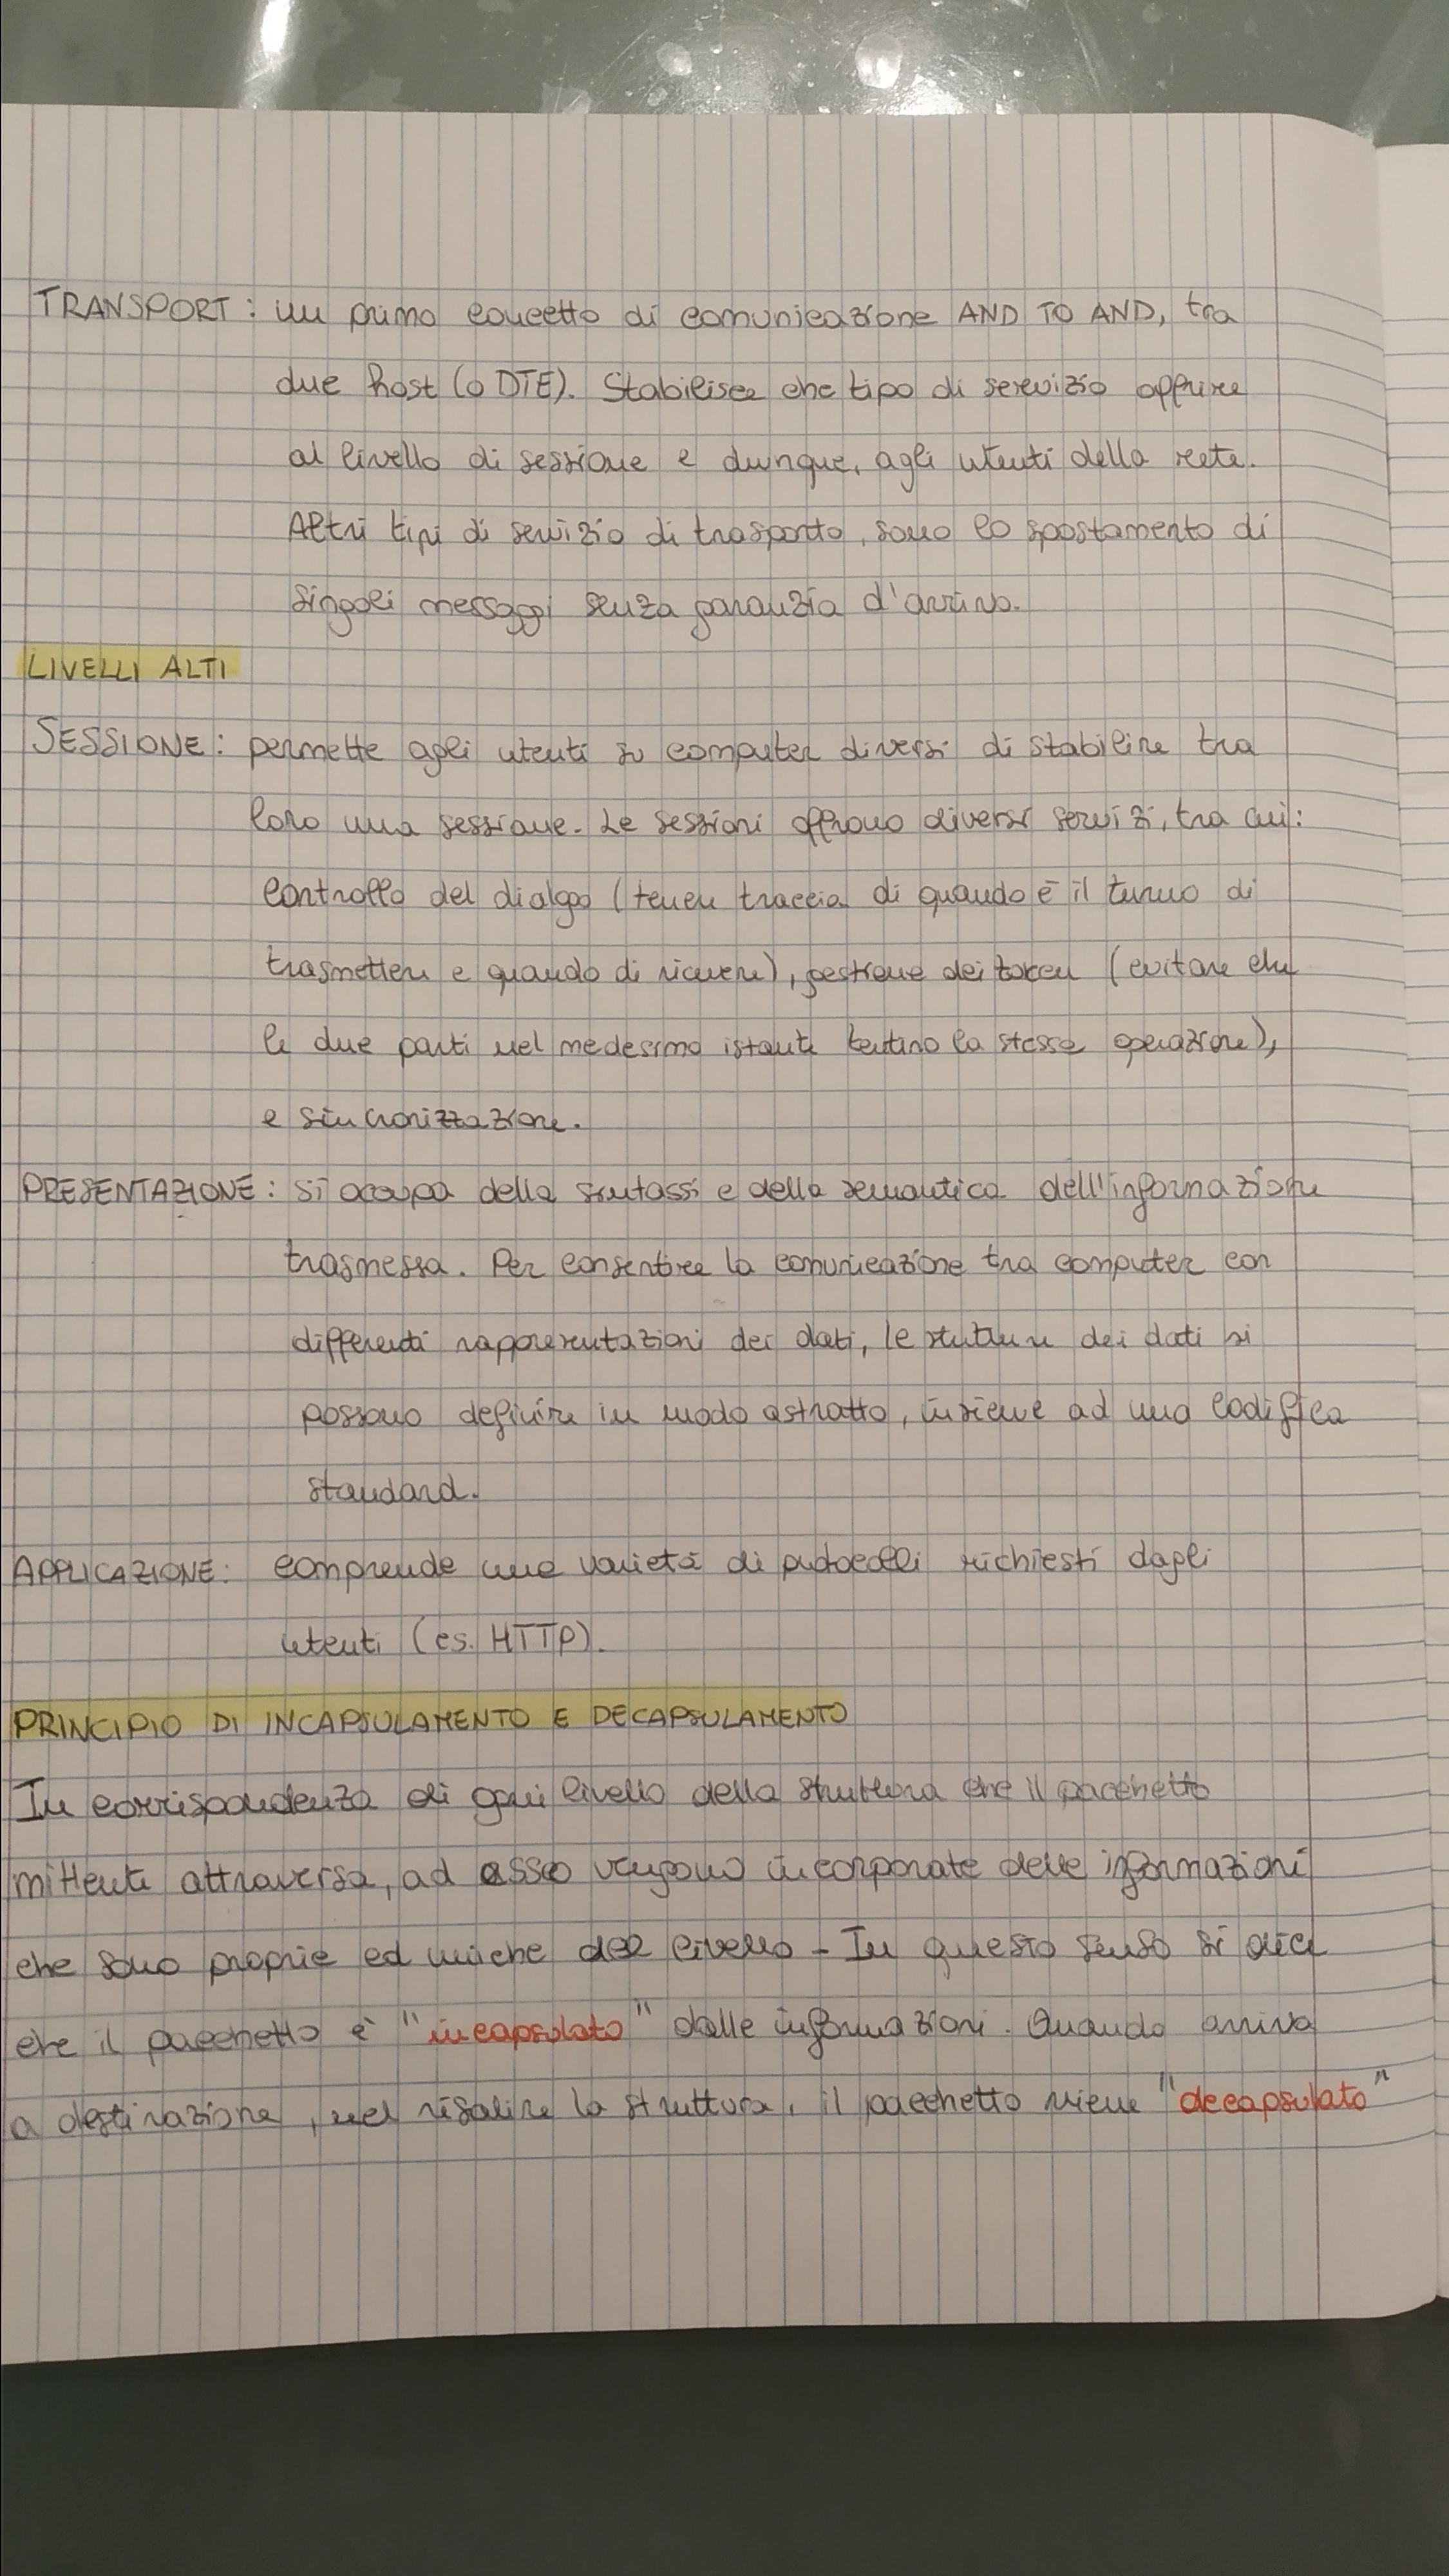 TRANSPORT: un primo concetto di comunicazione AND TO AND, tra
due host (o DTE). Stabilisce che tipo di servizio offrire
al livello di sessione e dunque, agli utenti della rete.
Altri tipi di servizio di trasporto, sono lo spostamento di
singoli messaggi senza garanzia d'arrivo.
LIVELLI ALTI
SESSIONE: permette agli utenti su computer diversi di stabilire tra
loro una sessione. Le sessioni offrono diversi servizi, tra cui:
controllo del dialogo (tenere traccia di quando è il turno di
trasmettere e quando di ricevere), gestione dei token (evitare che
le due parti nel medesimo istante tentino la stessa operazione),
e sincronizzazione.
PRESENTAZIONE: si occupa della sintassi e della semantica dell'informazione
trasmessa. Per consentire la comunicazione tra computer con
differenti rappresentazioni dei dati, le strutture dei dati si
possono definire in modo astratto, insieme ad una codifica
standard.
APPLICAZIONE: comprende una varietà di protocolli richiesti dagli
utenti (es. HTTP).
PRINCIPIO DI INCAPSULAMENTO E DECAPSULAMENTO
In corrispondenza di ogni livello della struttura che il pacchetto
mittente attraversa, ad esso vengono incorporate delle informazioni
che sono proprie ed uniche del livello - In questo senso si dice
che il pacchetto è "incapsulato" dalle informazioni. Quando arriva
a destinazione, nel risalire la struttura, il pacchetto viene "decapsulato"